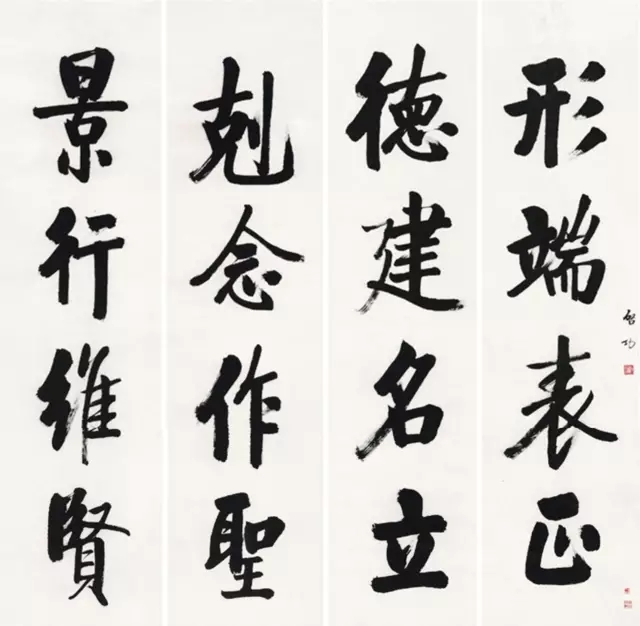 景行維賢
剋念作聖
德建名立
形端表正
啓功